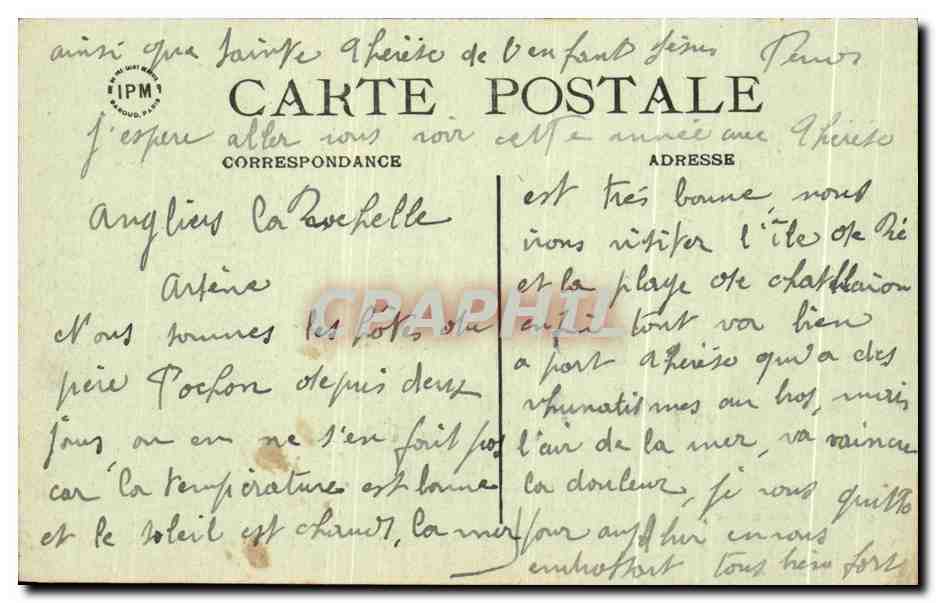 ainsi que Sainte Thérèse de l'enfant Jésus
CARTE POSTALE
IPM
BAROUD, PARIS
J'espere aller vous voir cette année avec Thérèse
CORRESPONDANCE
ADRESSE
Angliers La Rochelle
Nous sommes les hôtes du
père Pochon depuis deux
jours, on en ne s'en fait pas
car la température est bonne
et le soleil est chaud, la mer
est très bonne, nous
irons visiter l'île de Ré
et la plage de chatellaion
enfin tout va bien
a part Thérèse qu'a des
rhumatismes au bras, mais
l'air de la mer, va vaincre
la douleur, je vous quitte
pour aujd'hui en vous
embrassant tous bien fort
CRAPHIL